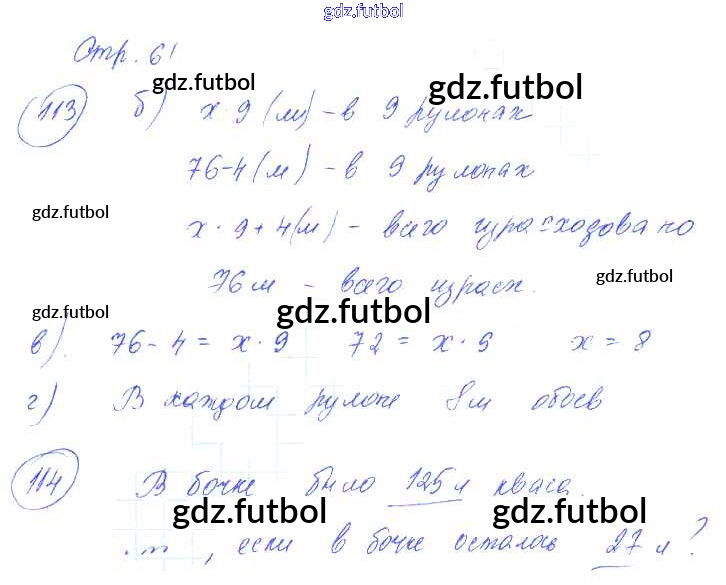 gdz.futbol
Стр. 61
gdz.futbol
gdz.futbol
113 б) х · 9 (м) - в 9 рулонах
76-4 (м) - в 9 рулонах
gdz.futbol
х · 9 + 4 (м) - всего израсходовано
gdz.futbol
76 м - всего израсх.
gdz.futbol
в). 76 - 4 = х · 9 72 = х · 9 х = 8
г) В каждом рулоне 8 м обоев
114 В бочке было 125 л кваса.
gdz.futbol
gdz.futbol
, если в бочке осталось 27 л?